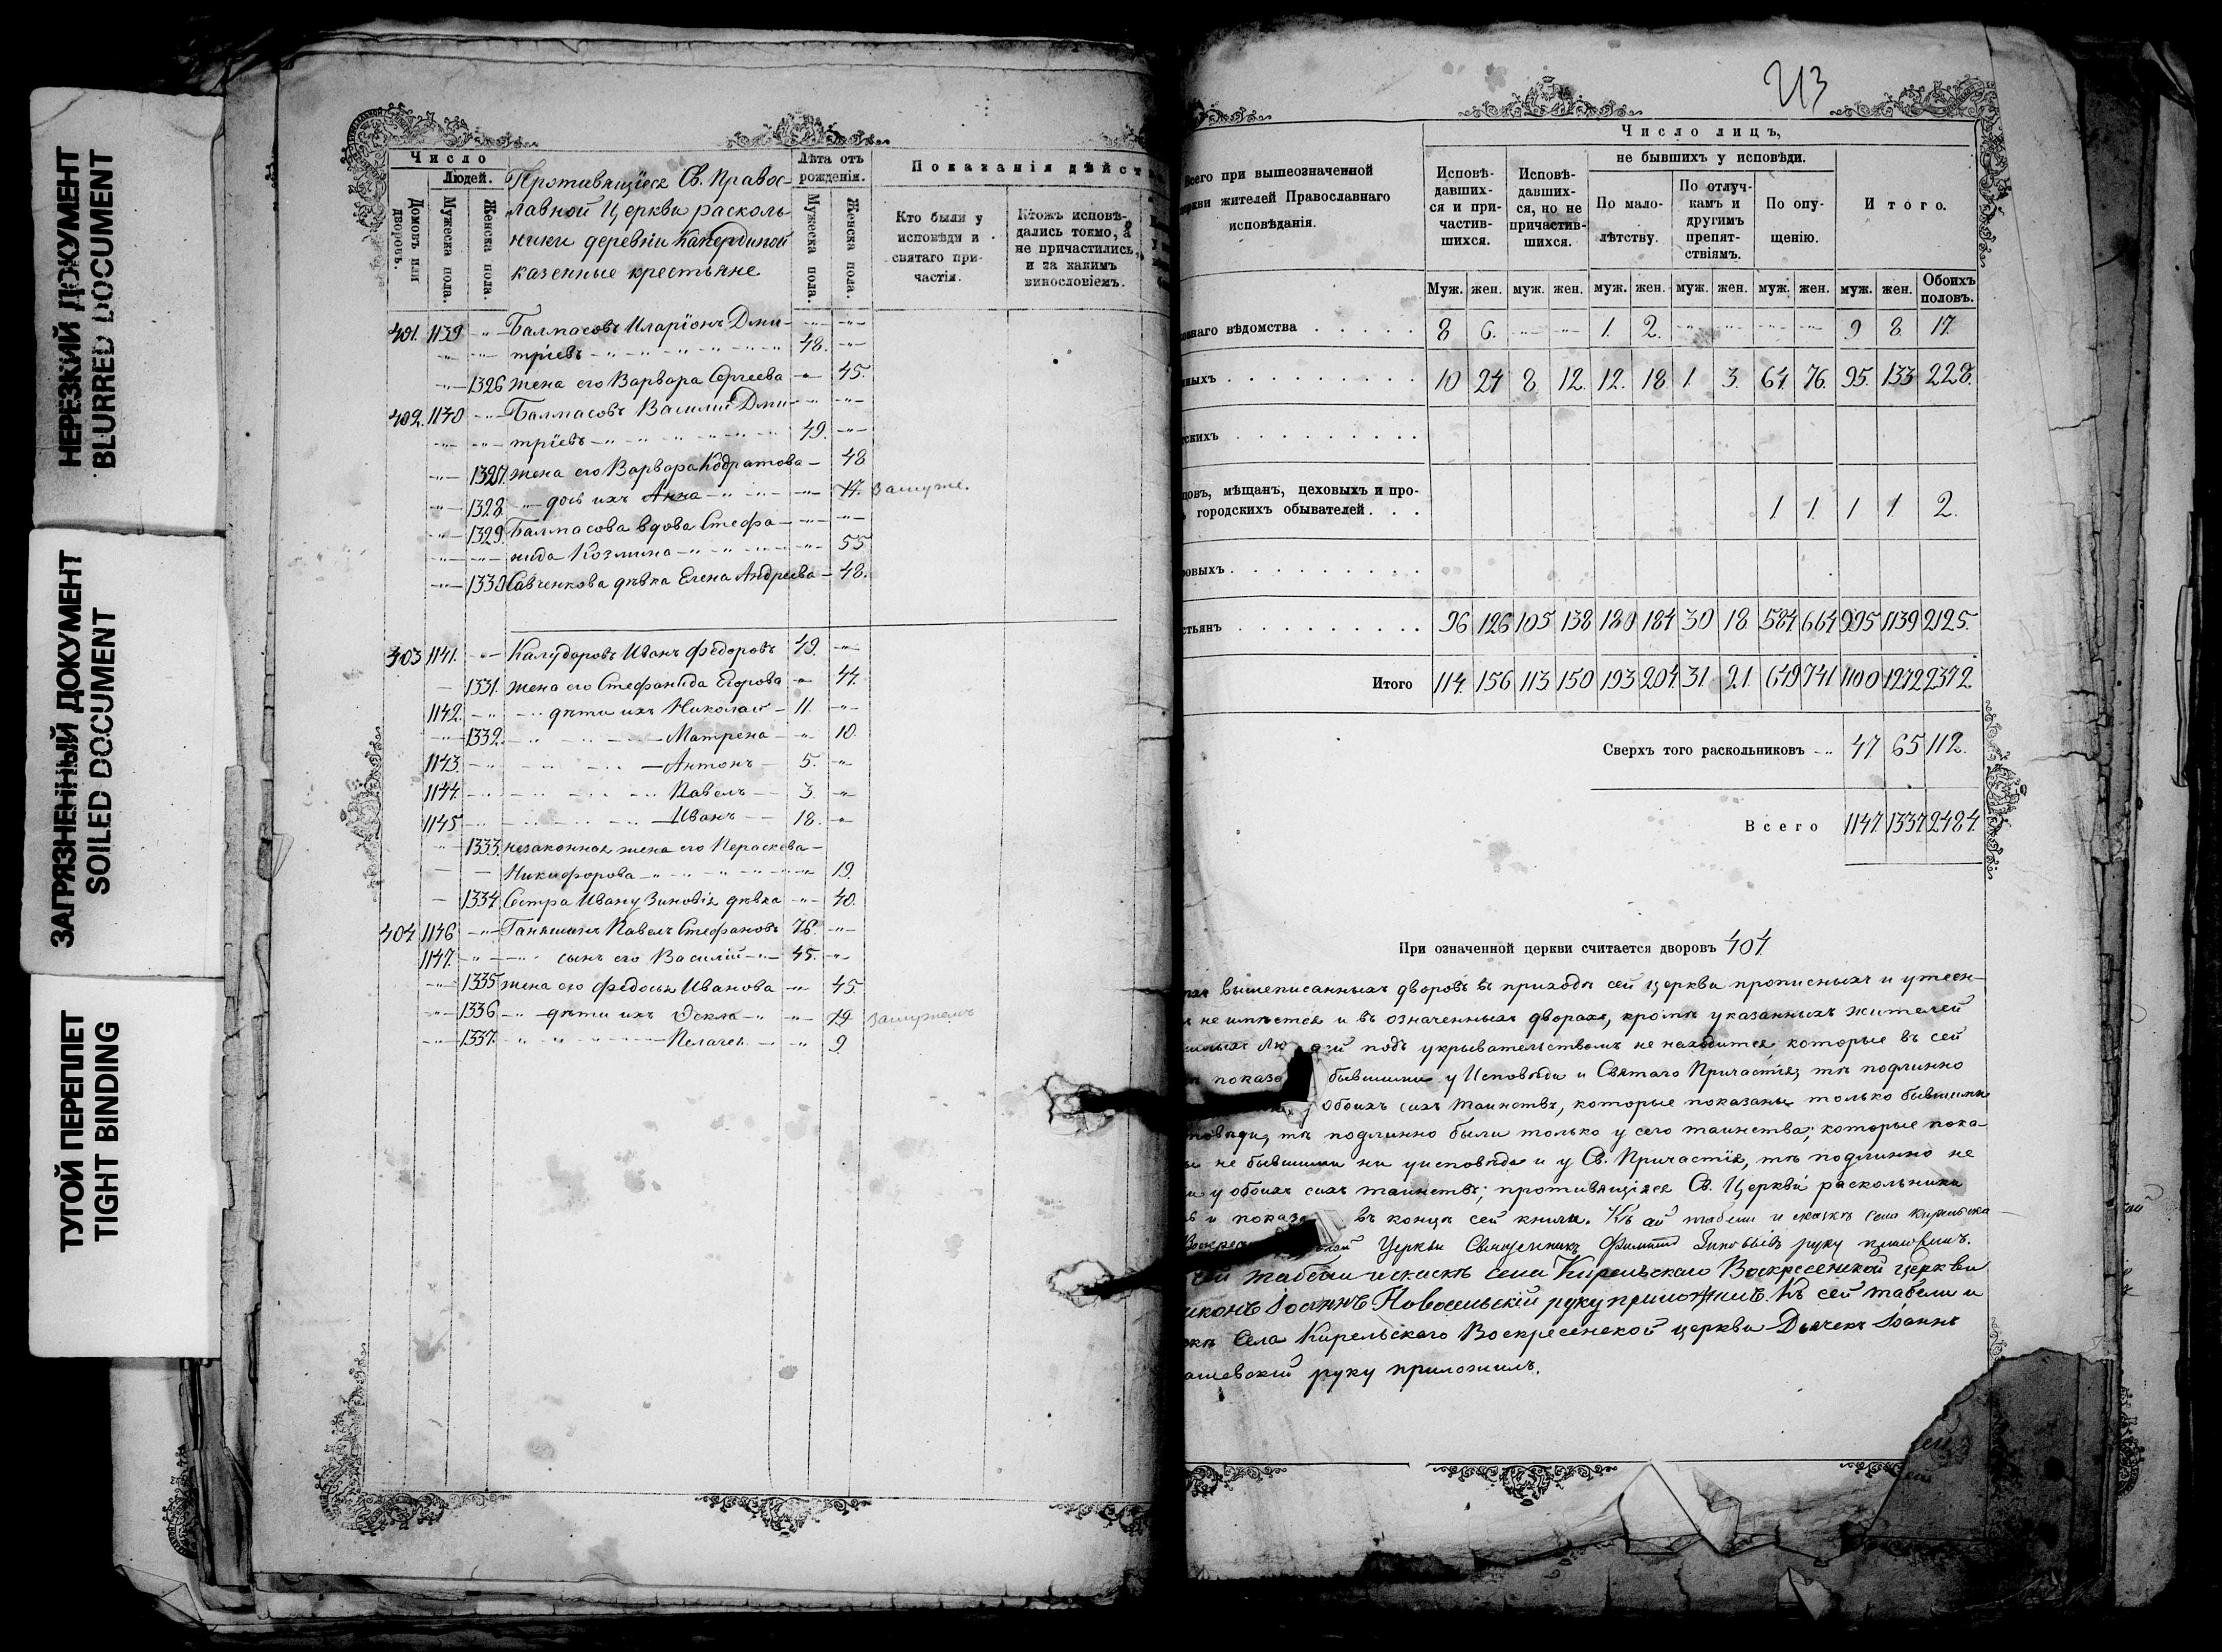 НЕРЕЗКИЙ ДОКУМЕНТ
BLURRED DOCUMENT
ЗАГРЯЗНЕННЫЙ ДОКУМЕНТ
SOILED DOCUMENT
ТУГОЙ ПЕРЕПЛЕТ
TIGHT BINDING
Число
Людей.
Домовъ или дворовъ.
Мужеска пола.
Женска пола.
Противящіеся Св. Правос-
лавной Церкви расколь-
ники деревни
казенные крестьяне
Лѣта отъ рожденія.
Мужеска пола.
Женска пола.
Показанія дѣйст
Кто были у исповѣди и святаго причастія.
Ктожъ исповѣдались токмо, а не причастились, и за какимъ винословіемъ.
401. 1139 Балмасовъ Иларіонъ Дми-
тріевъ 48.
1326 жена его Варвара Сергеева 45.
402. 1140 Балмасовъ Василій Дми-
тріевъ 49.
1327. жена его Варвара Кодратова 48
1328 дочь ихъ Анна 17. Замуже.
1329. Балмасова вдова Стефа-
нида Козмина 55
1330 Савченкова дѣвка Елена Андреева 48.
403 1141. Калударовъ Иванъ Федоровъ 49.
1331. жена его Стефанида Егорова 44.
1142. дѣти ихъ Николай 11.
1332. Матрена 10.
1143. Антонъ 5.
1144. Павелъ 3.
1145 Иванъ 18.
1333. незаконная жена его Пераскева
Никифорова 19.
1334 Сестра Ивану Зиновія дѣвка 40.
404 1146 Ганяшинъ Павелъ Стефановъ 76.
1147. сынъ его Василій 45.
1335 жена его Федосья Иванова 45.
1336 дѣти ихъ Ѳекла 19 замужемъ
1337. Пелагея 9.
Всего при вышеозначенной
церкви жителей Православнаго
исповѣданія.
Число лицъ,
Исповѣдавшихся и причастившихся.
Исповѣдавшихся, но не причастившихся.
не бывшихъ у исповѣди.
По малолѣтству.
По отлучкамъ и другимъ препятствіямъ.
По опущенію.
Итого.
Муж. жен. муж. жен. муж. жен. муж. жен. муж. жен. муж. жен. Обоихъ половъ.
овнаго вѣдомства 8 6. 1. 2. 9 8 17.
нныхъ 10 24 8 12. 12. 18 1. 3. 64 76. 95. 133 228.
тскихъ
цовъ, мѣщанъ, цеховыхъ и про-
городскихъ обывателей. 1. 1. 1 1. 2.
ровыхъ
стьянъ 96 126 105 138 180 184 30 18 584 664 995 1139 2125.
Итого 114. 156 113 150 193 204. 31 21 649 741 1100 1272 2372
Сверхъ того раскольниковъ 47 65 112.
Всего 1147. 1337. 2484.
При означенной церкви считается дворовъ 404
вышеписанныхъ дворовъ въ приходѣ сей церкви прописныхъ и утеен-
не имѣется и въ означенныхъ дворахъ, кромѣ указанныхъ жителей
подъ укрывательствомъ не находится которые въ сей
показа бывшими у Исповѣди и Святаго Причастія, тѣ подлинно
обоихъ сихъ таинствъ, которые показаны только бывшими
повѣди, тѣ подлинно были только у сего таинства; которые пока-
не бывшими ни у исповѣди и у Св. Причастія, тѣ подлинно не
и у обоихъ сихъ таинствъ; противящіеся Св. Церкви раскольники
и показа въ концѣ сей книги. Къ сей табели и сказкѣ села Кирельска-
Церкви Священникъ Зиновьевъ руку приложилъ.
сей табели и сказкѣ села Кирельскаго Воскресенской церкви
іаконъ Іоаннъ Новосельскій руку приложилъ. Къ сей табели и
зкѣ Села Кирельскаго Воскресенской церкви Дьячекъ Іоаннъ
ашевскій руку приложилъ.